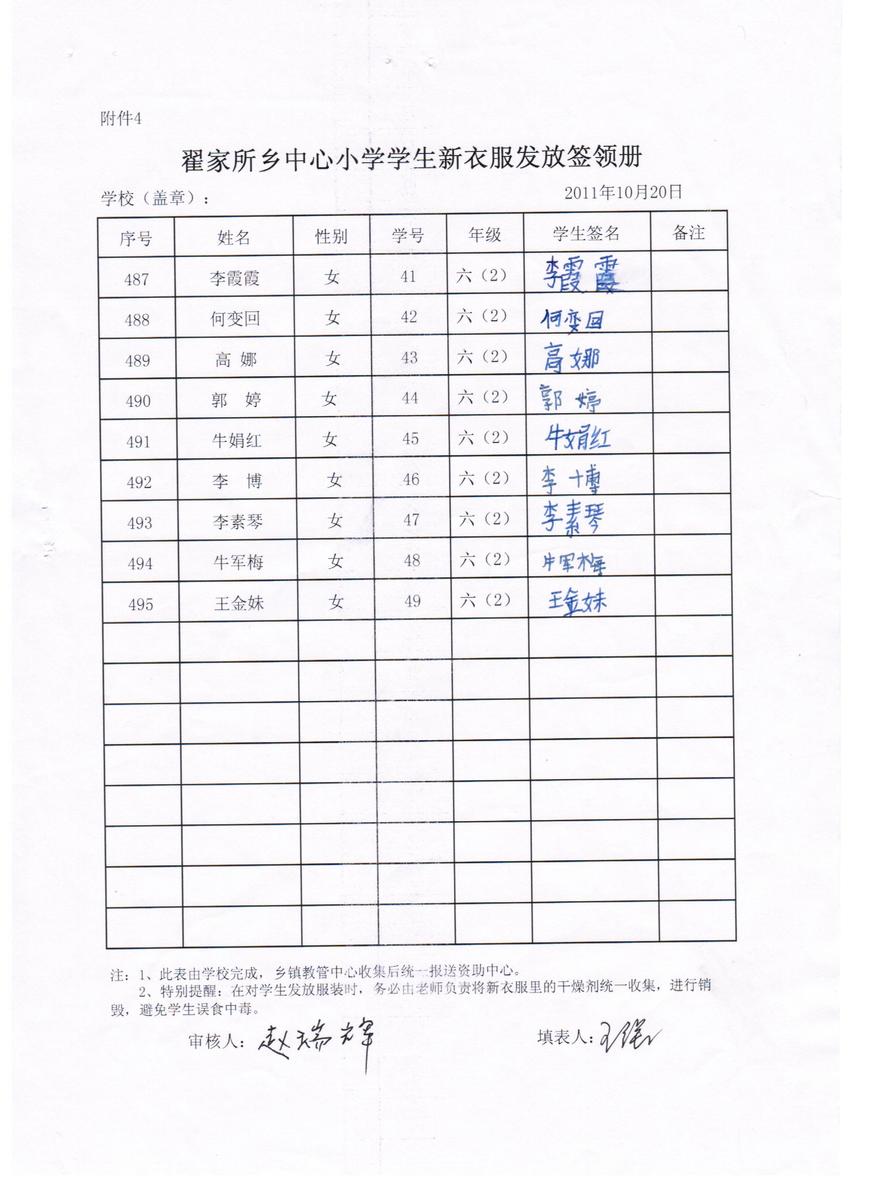 附件4
翟家所乡中心小学学生新衣服发放签领册
学校（盖章）： 2011年10月20日
序号 姓名 性别 学号 年级 学生签名 备注
487 李霞霞 女 41 六（2） 李霞霞
488 何变回 女 42 六（2） 何变回
489 高 娜 女 43 六（2） 高娜
490 郭 婷 女 44 六（2） 郭婷
491 牛娟红 女 45 六（2） 牛娟红
492 李 博 女 46 六（2） 李博
493 李素琴 女 47 六（2） 李素琴
494 牛军梅 女 48 六（2） 牛军梅
495 王金妹 女 49 六（2） 王金妹
注：1、此表由学校完成，乡镇教管中心收集后统一报送资助中心。
2、特别提醒：在对学生发放服装时，务必由老师负责将新衣服里的干燥剂统一收集，进行销
毁，避免学生误食中毒。
审核人：赵瑞辉 填表人：